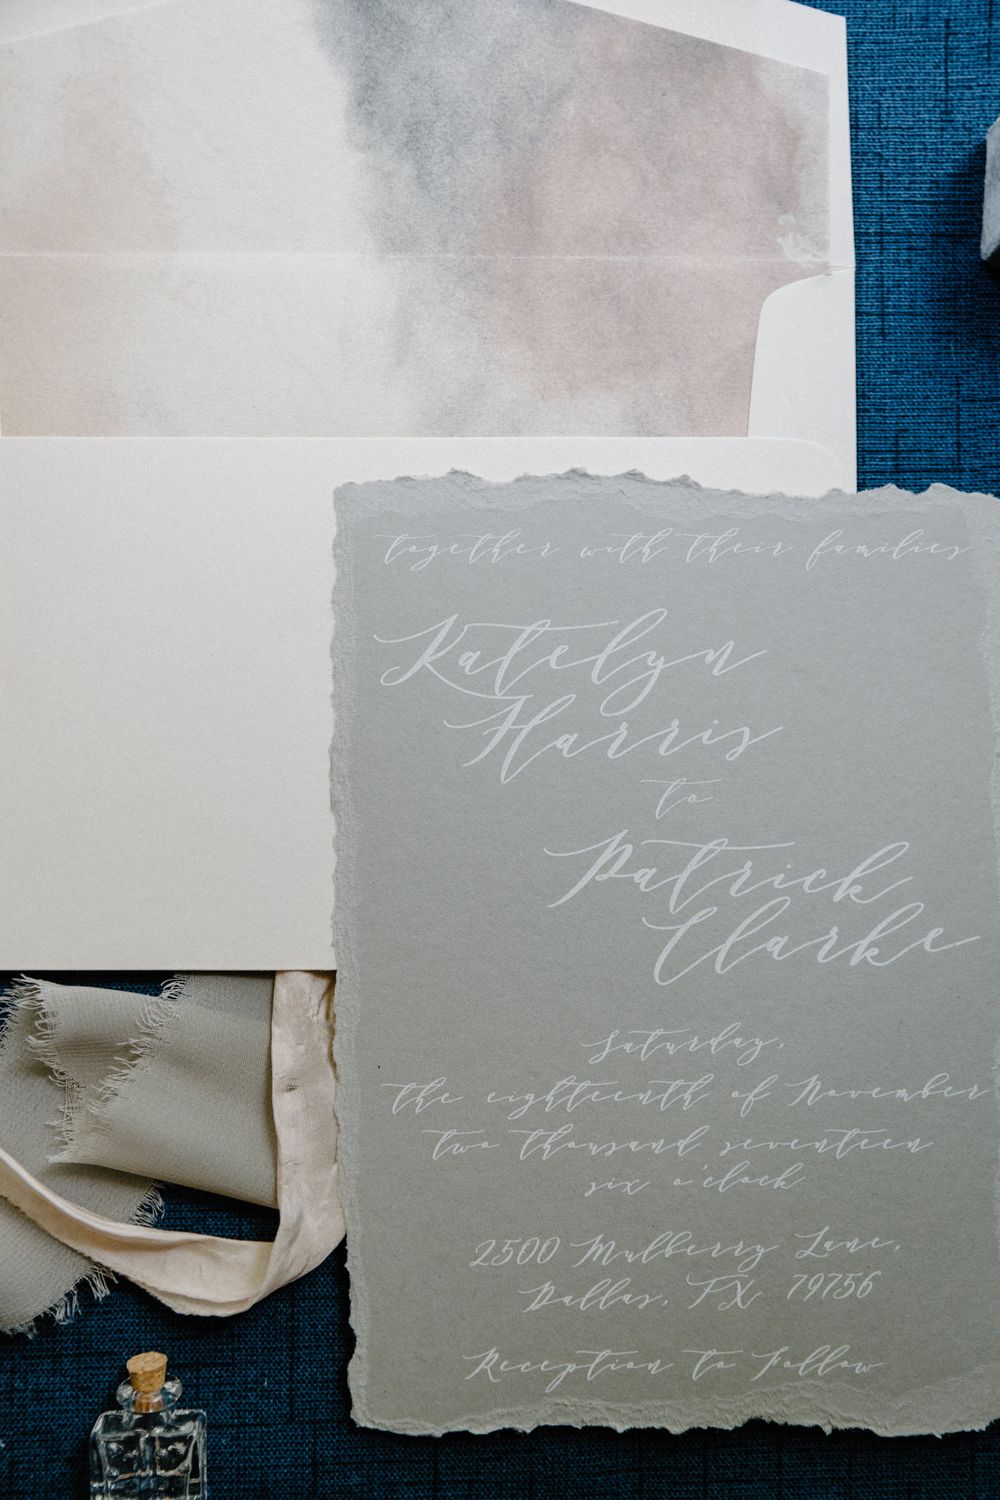 together with their families
Katelyn
Harris
to
Patrick
Clarke
Saturday,
the eighteenth of November
two thousand seventeen
six o'clock
2500 Mulberry Lane,
Dallas, TX 79756
Reception to Follow